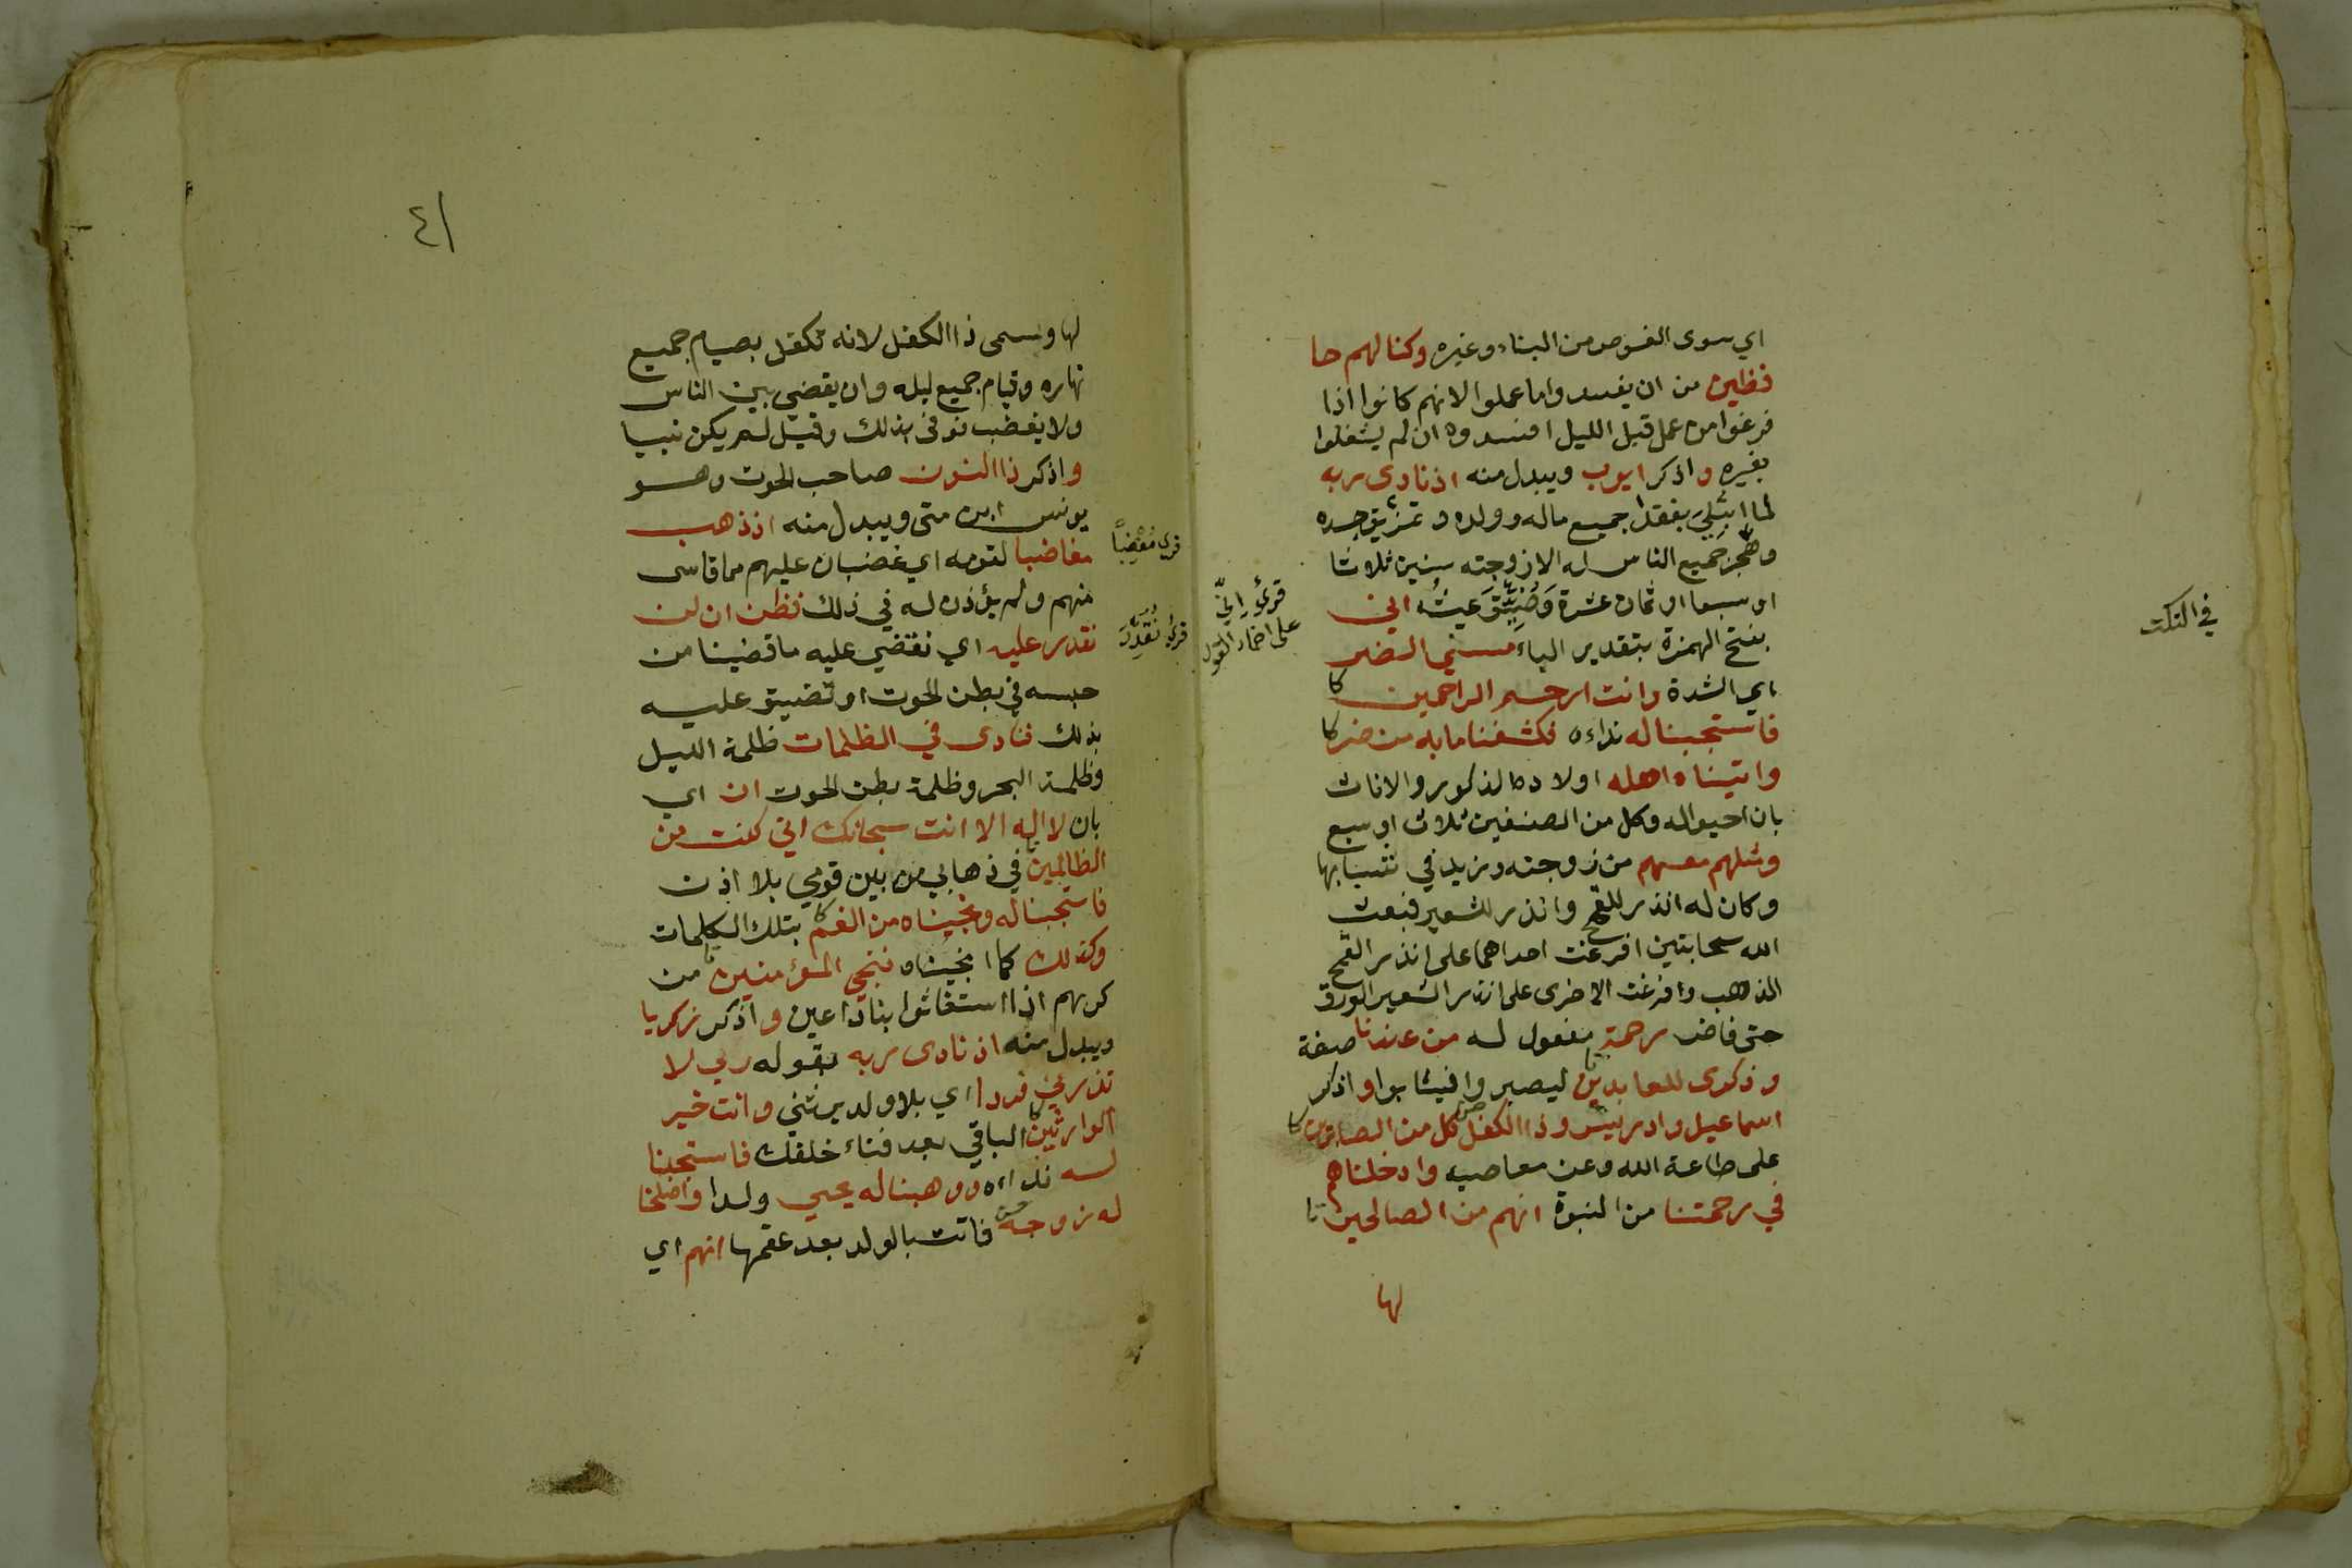 اي سوى الغوص من البناء وغيره وكنا لهم حا
فظين من ان يفسدوا ما عملوا لانهم كانوا اذا
فرغوا من عمل قبل الليل افسدوه ان لم يشغلوا
بغيره واذكر ايوب ويبدل منه اذ نادى ربه
لما ابتُلِيَ بفقد جميع ماله وولده وتمزيق جسده
وهجر جميع الناس له الا زوجته سنين ثلاثا
او سبعا او ثمان عشرة وَضُيِّقَ عيشُه اني
بفتح الهمزة بتقدير الباء مسني الضر
اي الشدة وانت ارحم الراحمين كا
فاستجبنا له نداءه فكشفنا ما به من ضر كا
واتيناه اهله اولاده الذكور والاناث
بان احيوا له وكل من الصنفين ثلاث او سبع
ومثلهم معهم من زوجته وزيد في شبابها
وكان له اندر للقمح واندر للشعير فبعث
الله سحابتين افرغت احداهما على اندر القمح
الذهب وافرغت الاخرى على اندر الشعير الورق
حتى فاض رحمة مفعول له من عندنا صفة
وذكرى للعابدين ليصبروا فيثابوا واذكر
اسماعيل وادريس وذا الكفل كل من الصابرين كا
على طاعة الله وعن معاصيه وادخلناهم
في رحمتنا من النبوة انهم من الصالحين تا
لها
قرئ إنّي
على اضمار القول
في النكت
٤١
لها وسمى ذا الكفل لانه تكفل بصيام جميع
نهاره وقيام جميع ليله وان يقضي بين الناس
ولا يغضب فوفى بذلك وقيل لم يكن نبيا
واذكر ذا النون صاحب الحوت وهو
يونس ابن متى ويبدل منه اذ ذهب
مغاضبا لقومه اي غضبان عليهم مما قاسى
منهم ولم يؤذن له في ذلك فظن ان لن
نقدر عليه اي نقضي عليه ما قضينا من
حبسه في بطن الحوت او تضييق عليه
بذلك فنادى في الظلمات ظلمة الليل
وظلمة البحر وظلمة بطن الحوت ان اي
بان لا اله الا انت سبحانك اني كنت من
الظالمين في ذهابي من بين قومي بلا اذن
فاستجبنا له ونجيناه من الغم كا بتلك الكلمات
وكذلك كما انجيناه ننجي المؤمنين من
كربهم اذا استغاثوا بنا داعين واذكر زكريا
ويبدل منه اذ نادى ربه بقوله ربي لا
تذرني فردا اي بلا ولد يرثني وانت خير
الوارثين الباقي بعد فناء خلقك فاستجبنا
له نداءه ووهبنا له يحيي ولدا واصلحنا
له زوجه فاتت بالولد بعد عقمها انهم اي
قرئ مُغْضَباً
قرئ نُقَدِّرَ